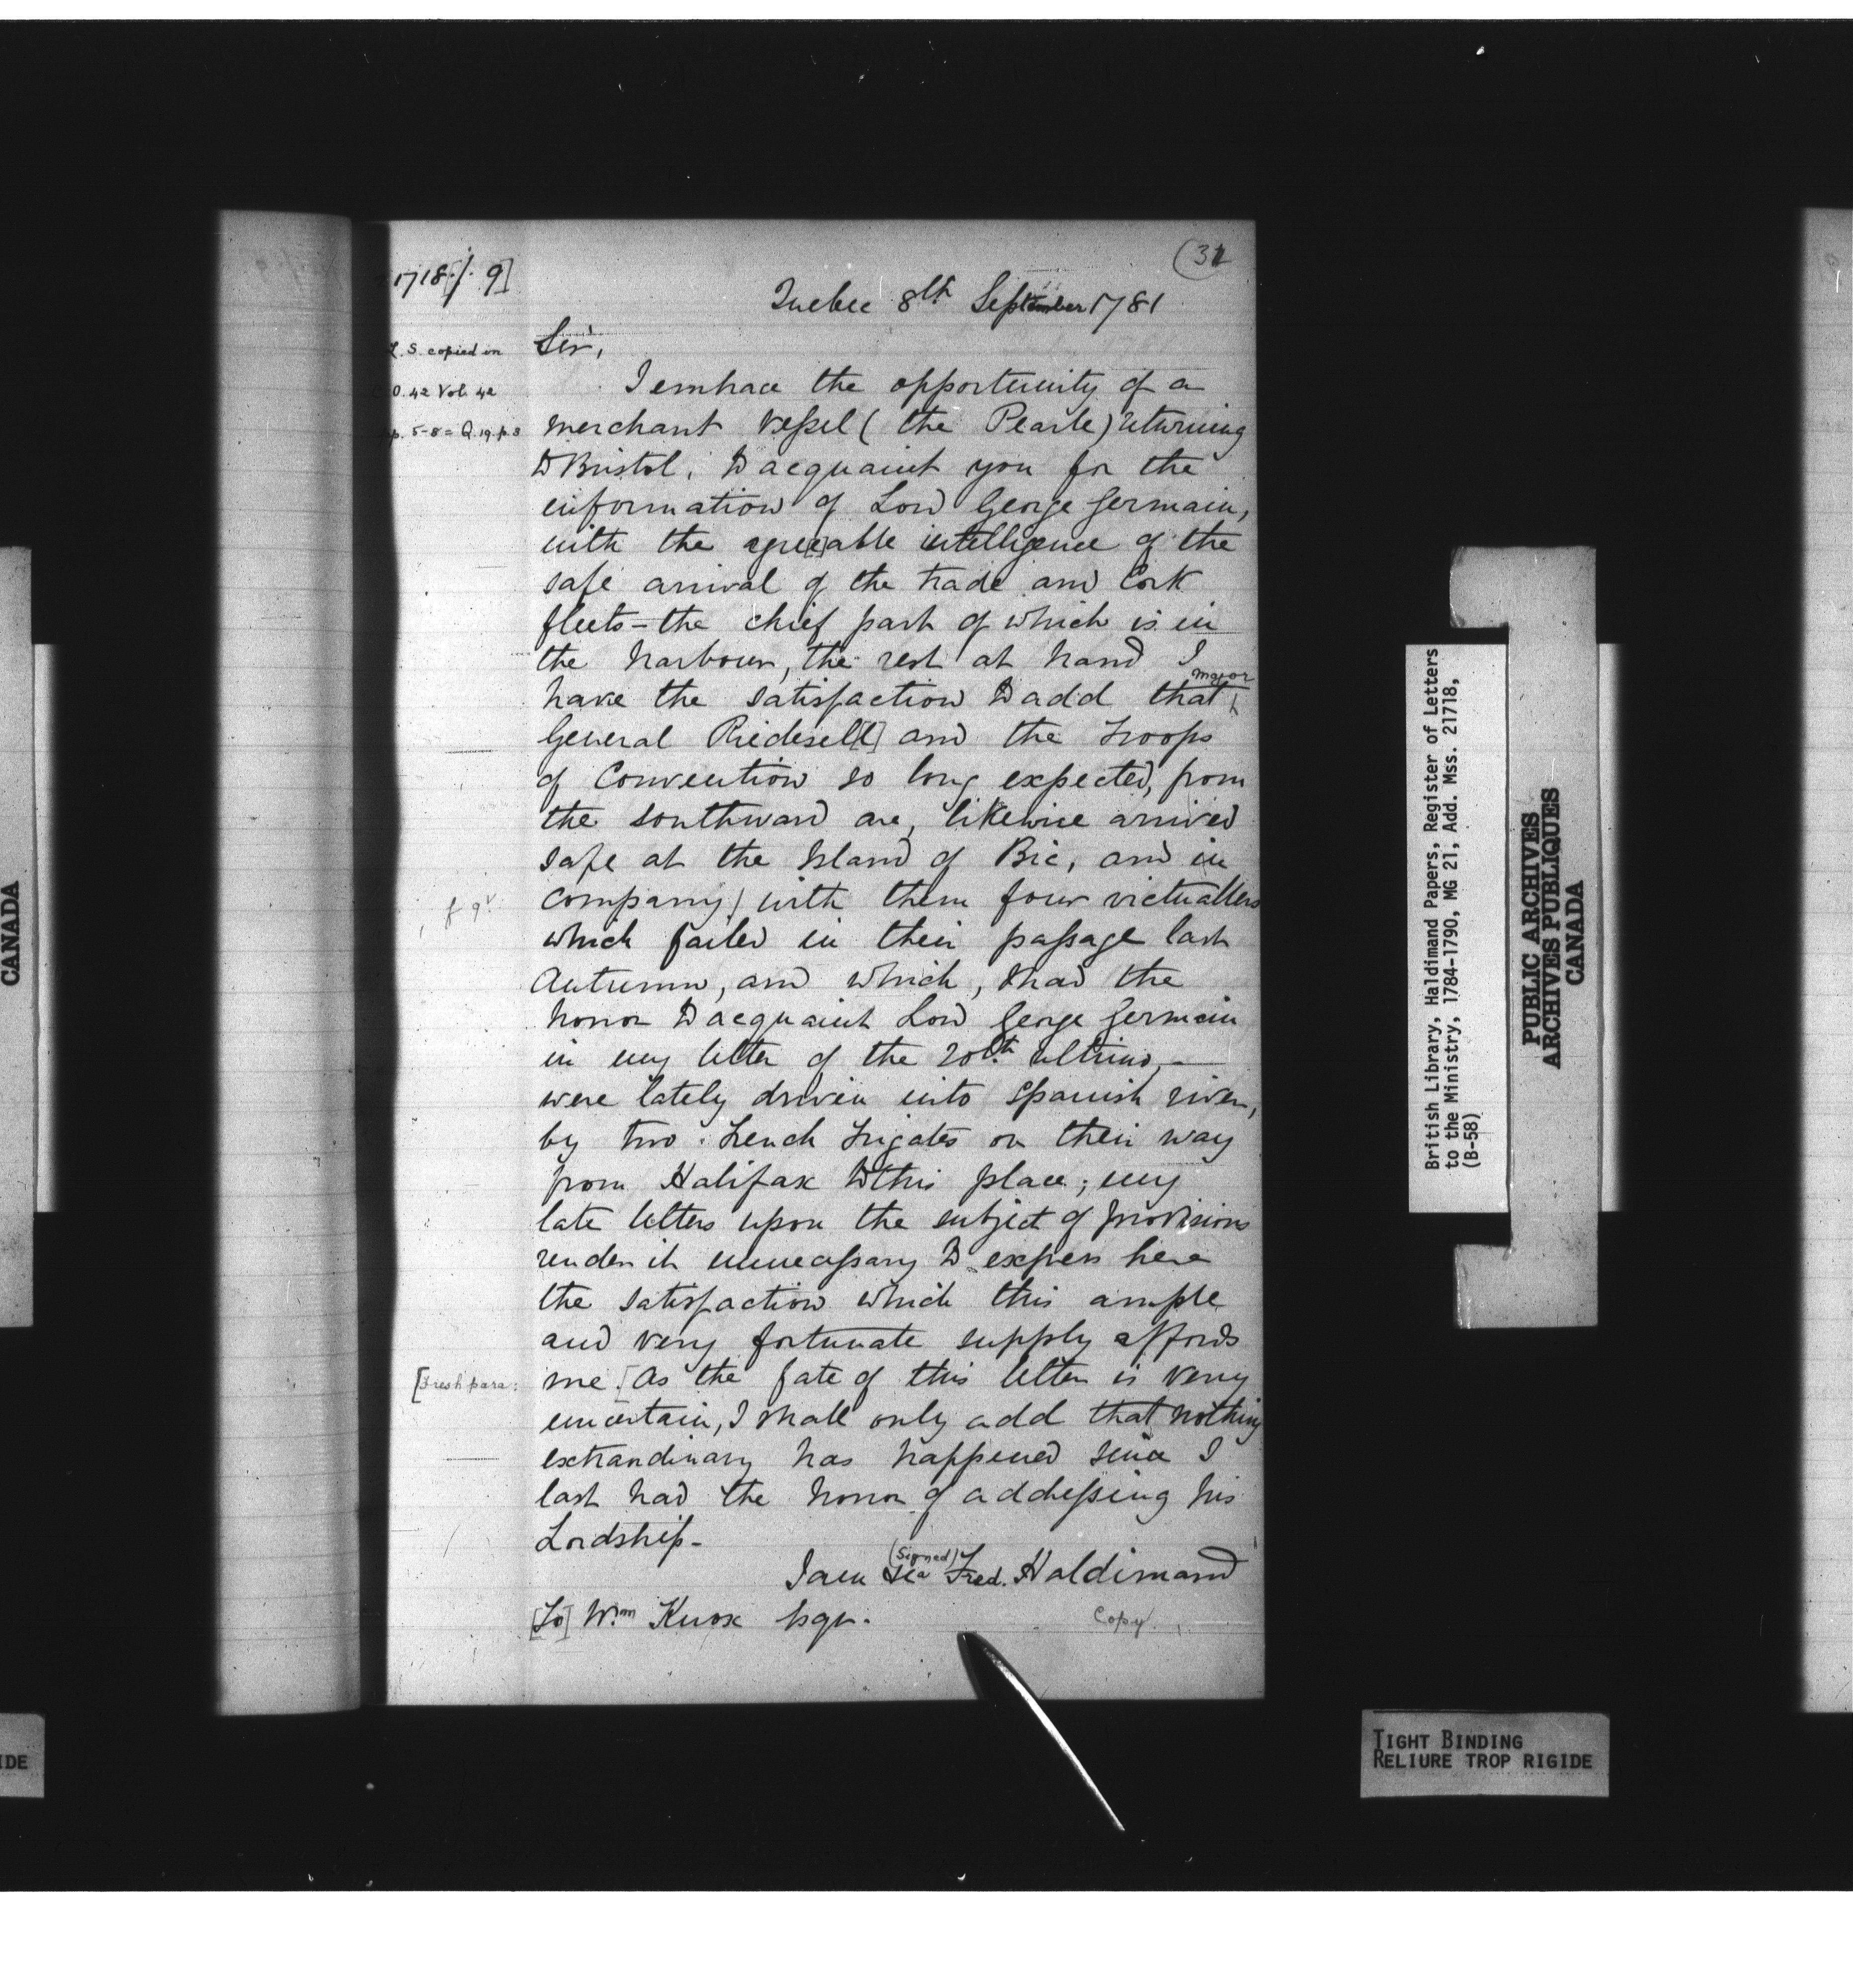 (32
1718. f. 9]
Quebec 8th September 1781
L. S. copied in
C.O. 42 Vol. 42
pp. 5-8 = Q. 19. p. 3
Sir,
I embrace the opportunity of a
merchant vessel ( the Pearle) returning
to Bristol, to acquaint you for the
information of Lord George Germain,
with the agre[e]able intelligence of the
safe arrival of the trade and Cork
fleets - the chief part of which is in
the harbour, the rest at hand I
have the satisfaction to add that major
General Riedesel[l] and the Troops
of Convention so long expected, from
the southward are, likewise arrived
safe at the Island of Bic, and in
f 9v.
company / with them four victuallers
which failed in their passage last
Autumn, and which, I had the
honor to acquaint Lord George Germain
in my letter of the 20th Ultimo, -
were lately driven into Spanish river,
by two French Frigates on their way
from Halifax to this place; my
late letters upon the subject of provisions
render it unnecessary to express here
the satisfaction which this ample
and very fortunate supply affords
[Fresh para:
me. [As the fate of this letter is very
uncertain, I shall only add that nothing
extraordinary has happened since I
last had the honor of addressing his
Lordship -
I am &ca (Signed) Fred. Haldimand
[To] Wm. Knox Esqr.
Copy
British Library, Haldimand Papers, Register of Letters
to the Ministry, 1784-1790, MG 21, Add. Mss. 21718,
(B-58)
PUBLIC ARCHIVES
ARCHIVES PUBLIQUES
CANADA
TIGHT BINDING
RELIURE TROP RIGIDE
CANADA
IDE